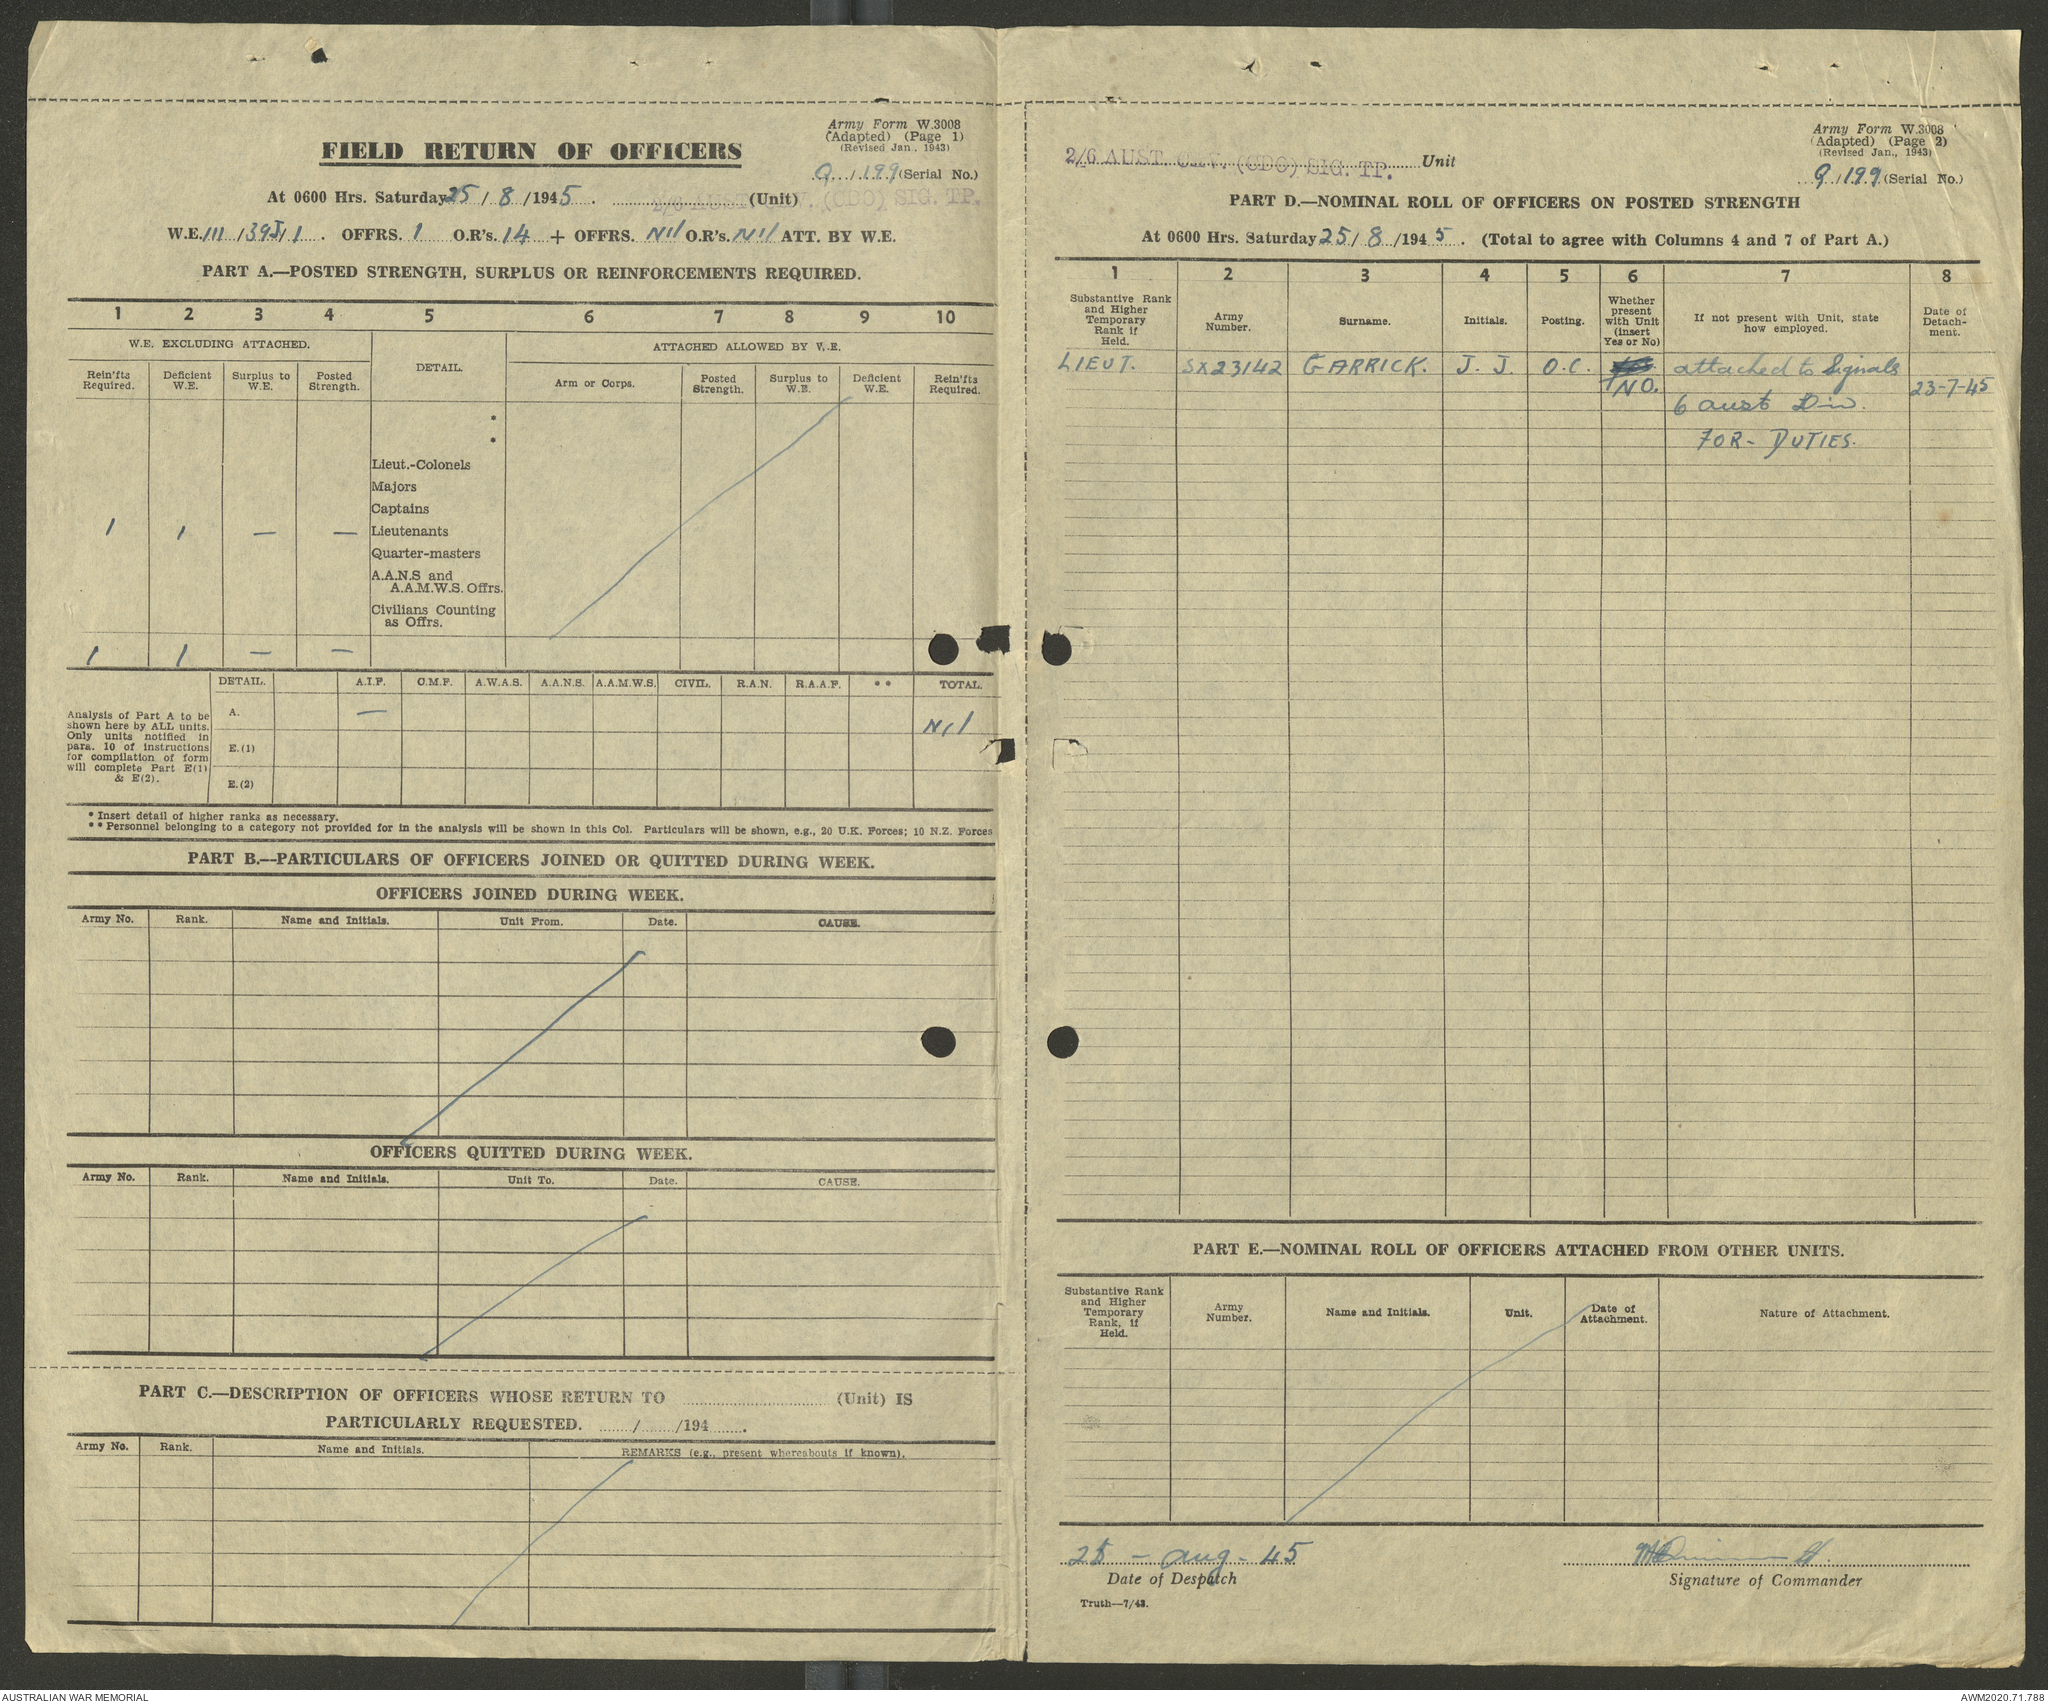 Army Form W.3008
(Adapted) (Page 1)
(Revised Jan., 1943)
FIELD RETURN OF OFFICERS
Q / 199 (Serial No.)
At 0600 Hrs. Saturday 25 / 8 / 1945 . 2/6 AUST. C.A.V. (CDO) SIG. TP. (Unit)
W.E. III / 39J / 1 . OFFRS. 1 O.R's. 14 + OFFRS. Nil O.R's. Nil ATT. BY W.E.
PART A.—POSTED STRENGTH, SURPLUS OR REINFORCEMENTS REQUIRED.
1 2 3 4 5 6 7 8 9 10
W.E. EXCLUDING ATTACHED. DETAIL. ATTACHED ALLOWED BY W.E.
Rein'fts Required. Deficient W.E. Surplus to W.E. Posted Strength. Arm or Corps. Posted Strength. Surplus to W.E. Deficient W.E. Rein'fts Required.
*
*
Lieut.-Colonels
Majors
Captains
1 1 — — Lieutenants
Quarter-masters
A.A.N.S and
A.A.M.W.S. Offrs.
Civilians Counting
as Offrs.
1 1 — —
DETAIL. A.I.F. C.M.F. A.W.A.S. A.A.N.S. A.A.M.W.S. CIVIL. R.A.N. R.A.A.F. ** TOTAL.
A. — Nil
E.(1)
E.(2)
Analysis of Part A to be
shown here by ALL units.
Only units notified in
para. 10 of instructions
for compilation of form
will complete Part E(1)
& E(2).
* Insert detail of higher ranks as necessary.
** Personnel belonging to a category not provided for in the analysis will be shown in this Col. Particulars will be shown, e.g., 20 U.K. Forces; 10 N.Z. Forces
PART B.—PARTICULARS OF OFFICERS JOINED OR QUITTED DURING WEEK.
OFFICERS JOINED DURING WEEK.
Army No. Rank. Name and Initials. Unit From. Date. CAUSE.
OFFICERS QUITTED DURING WEEK.
Army No. Rank. Name and Initials. Unit To. Date. CAUSE.
PART C.—DESCRIPTION OF OFFICERS WHOSE RETURN TO (Unit) IS
PARTICULARLY REQUESTED. / /194 .
Army No. Rank. Name and Initials. REMARKS (e.g., present whereabouts if known).
Army Form W.3008
(Adapted) (Page 2)
(Revised Jan., 1943)
2/6 AUST. C.A.V. (CDO) SIG. TP. Unit
Q / 199 (Serial No.)
PART D.—NOMINAL ROLL OF OFFICERS ON POSTED STRENGTH
At 0600 Hrs. Saturday 25 / 8 / 1945 . (Total to agree with Columns 4 and 7 of Part A.)
1 2 3 4 5 6 7 8
Substantive Rank and Higher Temporary Rank if Held. Army Number. Surname. Initials. Posting. Whether present with Unit (insert Yes or No) If not present with Unit, state how employed. Date of Detachment.
LIEUT. SX23142 GARRICK. J. J. O.C. NO. attached to Signals
6 Aust Div. 23-7-45
FOR - DUTIES.
PART E.—NOMINAL ROLL OF OFFICERS ATTACHED FROM OTHER UNITS.
Substantive Rank and Higher Temporary Rank, if Held. Army Number. Name and Initials. Unit. Date of Attachment. Nature of Attachment.
25 - Aug - 45
Date of Despatch
Signature of Commander
Truth—7/43.
AUSTRALIAN WAR MEMORIAL
AWM2020.71.788